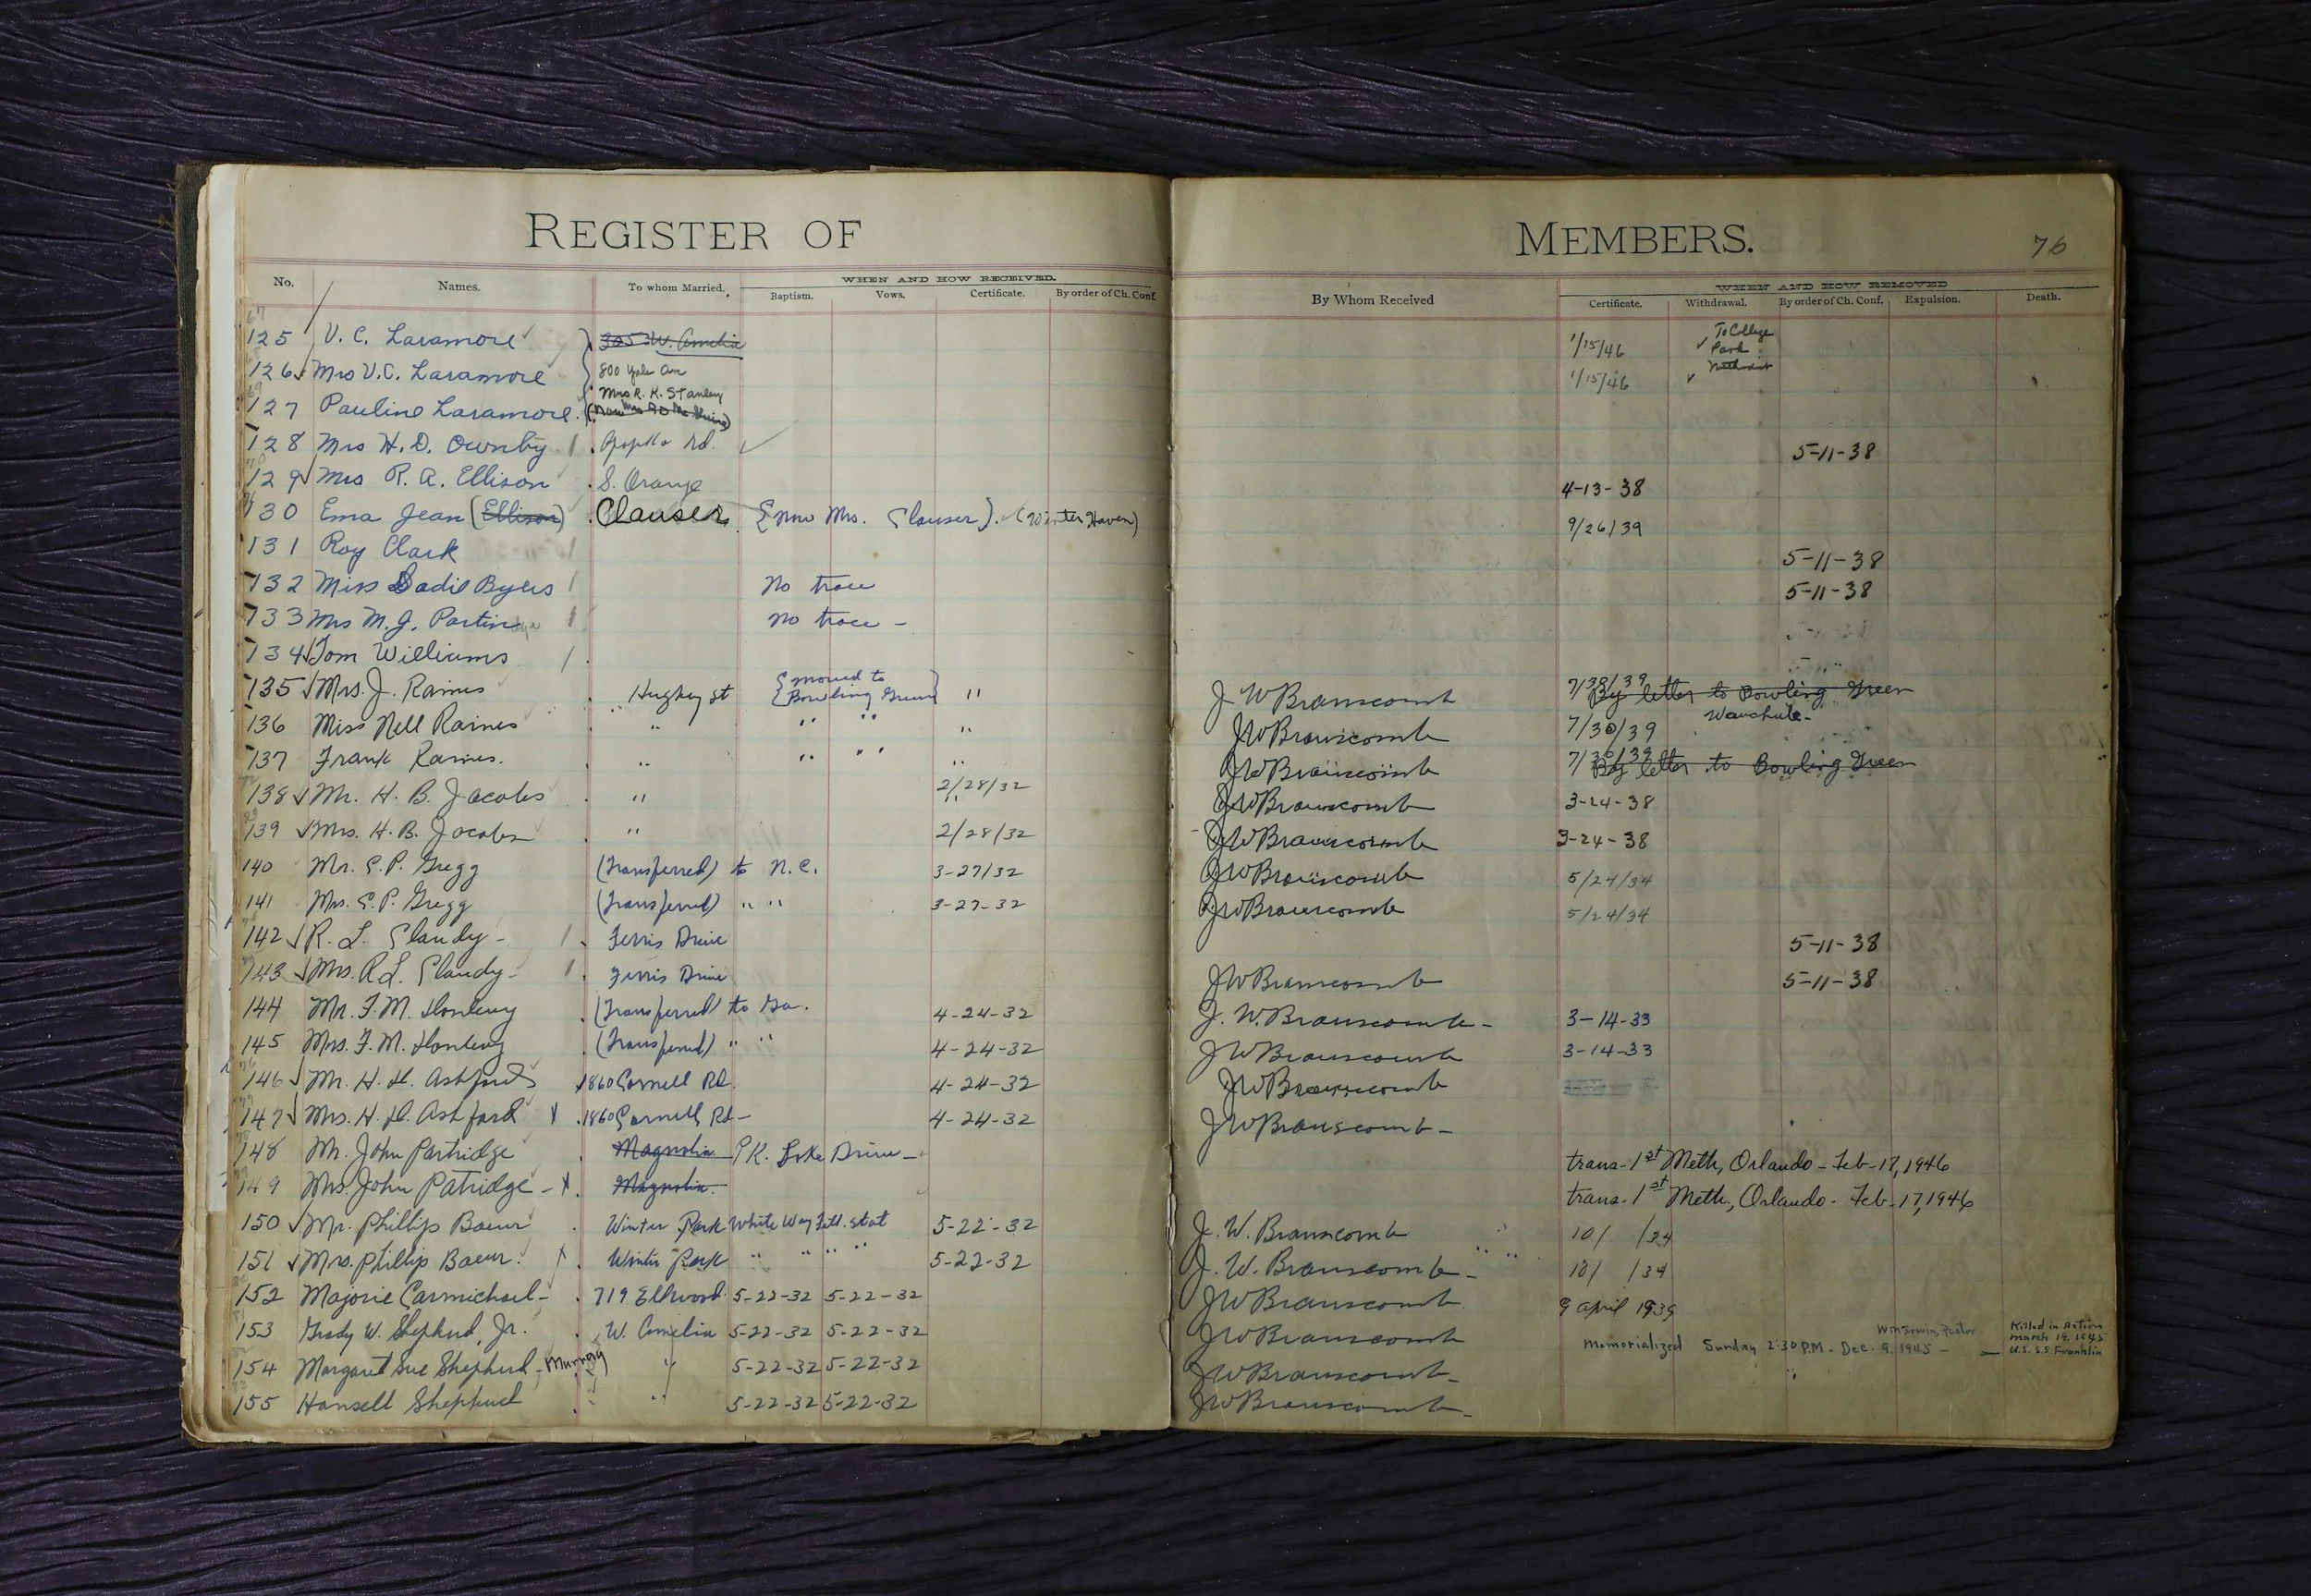 REGISTER OF MEMBERS. 76
No. Names. To whom Married. WHEN AND HOW RECEIVED. By Whom Received WHEN AND HOW REMOVED
Baptism. Vows. Certificate. By order of Ch. Conf. Certificate. Withdrawal. By order of Ch. Conf. Expulsion. Death.
125 V. C. Laramore 305 W. Amelia 1/15/46 To College Park Methodist
126 Mrs V. C. Laramore 800 Yale Ave 1/15/46
127 Pauline Laramore Mrs R. K. Stanley
128 Mrs H. D. Ownby Apopka Rd. 5-11-38
129 Mrs R. A. Ellison S. Orange 4-13-38
130 Ema Jean (Ellison) Clauser {now Mrs. Clauser}. (Winter Haven) 9/26/39
131 Roy Clark 5-11-38
132 Miss Sadie Byers No trace 5-11-38
133 Mrs M. J. Partin No trace -
134 Tom Williams
135 Mrs. J. Raines Hughey St {moved to Bowling Green} " J W Branscomb 7/30/39 By letter to Bowling Green
136 Miss Nell Raines " " " " J W Branscomb 7/30/39 Wauchula-
137 Frank Raines. " " " " J W Branscomb 7/30/39 By letter to Bowling Green
138 Mr. H. B. Jacobs " 2/28/32 J W Branscomb 3-24-38
139 Mrs. H. B. Jacobs " 2/28/32 J W Branscomb 3-24-38
140 Mr. C. P. Gregg (Transferred) to N.C. 3-27/32 J W Branscomb 5/24/34
141 Mrs. C. P. Gregg (Transferred) " " 3-27-32 J W Branscomb 5/24/34
142 R. L. Clandy - Ferris Drive 5-11-38
143 Mrs. R L. Clandy - Ferris Drive J W Branscomb 5-11-38
144 Mr. F. M. (Transferred) to Ga. 4-24-32 J. W. Branscomb - 3-14-33
145 Mrs. F. M. (Transferred) " " 4-24-32 J W Branscomb 3-14-33
146 Mr. H. H. Ashford 1860 Cornell Rd. 4-24-32 J W Branscomb
147 Mrs. H. H. Ashford X 1860 Cornell Rd - 4-24-32 J W Branscomb -
148 Mr. John Partridge Magnolia PK. Lake Drive - trans. 1st Meth, Orlando - Feb-17, 1946
149 Mrs. John Patridge - X Magnolia. trans. 1st Meth., Orlando - Feb. 17, 1946
150 Mr. Phillip Baeur Winter Park White Way Fill. Stat 5-22-32 J. W. Branscomb 10/ /34
151 Mrs. Phillip Baeur. X Winter Park " " " " 5-22-32 J. W. Branscomb - 10/ /34
152 Majorie Carmichael - 719 Ellwood 5-22-32 5-22-32 J W Branscomb 9 April 1939
153 Grady W. Shepherd, Jr. W. Amelia 5-22-32 5-22-32 J W Branscomb Memorialized Sunday 2:30 P.M. - Dec. 9, 1945 - Wm Irwin, Pastor Killed in Action March 19, 1945 U.S.S. Franklin
154 Margaret Sue Shepherd - Murray " 5-22-32 5-22-32 J W Branscomb -
155 Hansell Shepherd " 5-22-32 5-22-32 J W Branscomb -